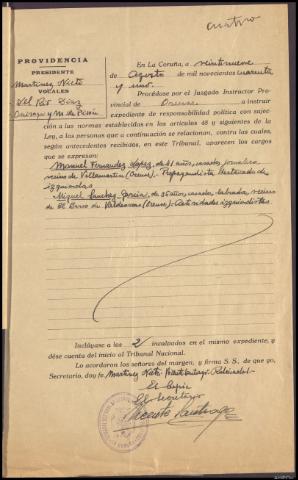 cuatro
PROVIDENCIA
PRESIDENTE
Martinez Nieto
VOCALES
Del Rio Diaz
En La Coruña, a veintinueve
de Agosto de mil novecientos cuarenta
y uno.
Procédase por el Juzgado Instructor Pro-
vincial de Orense, a instruir
expediente de responsabilidad política con suje-
ción a las normas establecidas en los artículos 48 y siguientes de la
Ley, a las personas que a continuación se relacionan, contra las cuales,
según antecedentes recibidos, en este Tribunal, aparecen los cargos
que se expresan:
Manuel Fernandez Lopez, de 41 años, casado, jornalero,
vecino de Villamartin (Orense). Propagandista destacado de
izquierdas
Miguel Sanchez Garcia, de 35 años, casado, labrador, vecino
de El Barco de Valdeorras (Orense). Actividades izquierdistas.
Inclúyase a los 2 inculpados en el mismo expediente, y
dése cuenta del inicio al Tribunal Nacional.
Lo acordaron los señores del margen, y firma S. S. de que yo,
Secretario, doy fe. Martinez Nieto
Es copia
El Secretario
Vicente Santiago